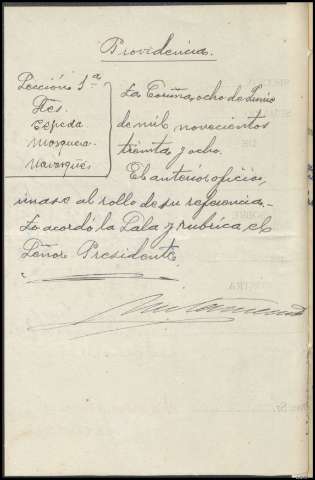 Providencia.
Sección 1ª
Sres.
Cepeda
Mosquera
La Coruña, ocho de Junio
de mil novecientos
treinta y ocho.
El anterior oficio,
únase al rollo de su referencia.-
Lo acordó la Sala y rubrica el
Señor Presidente.